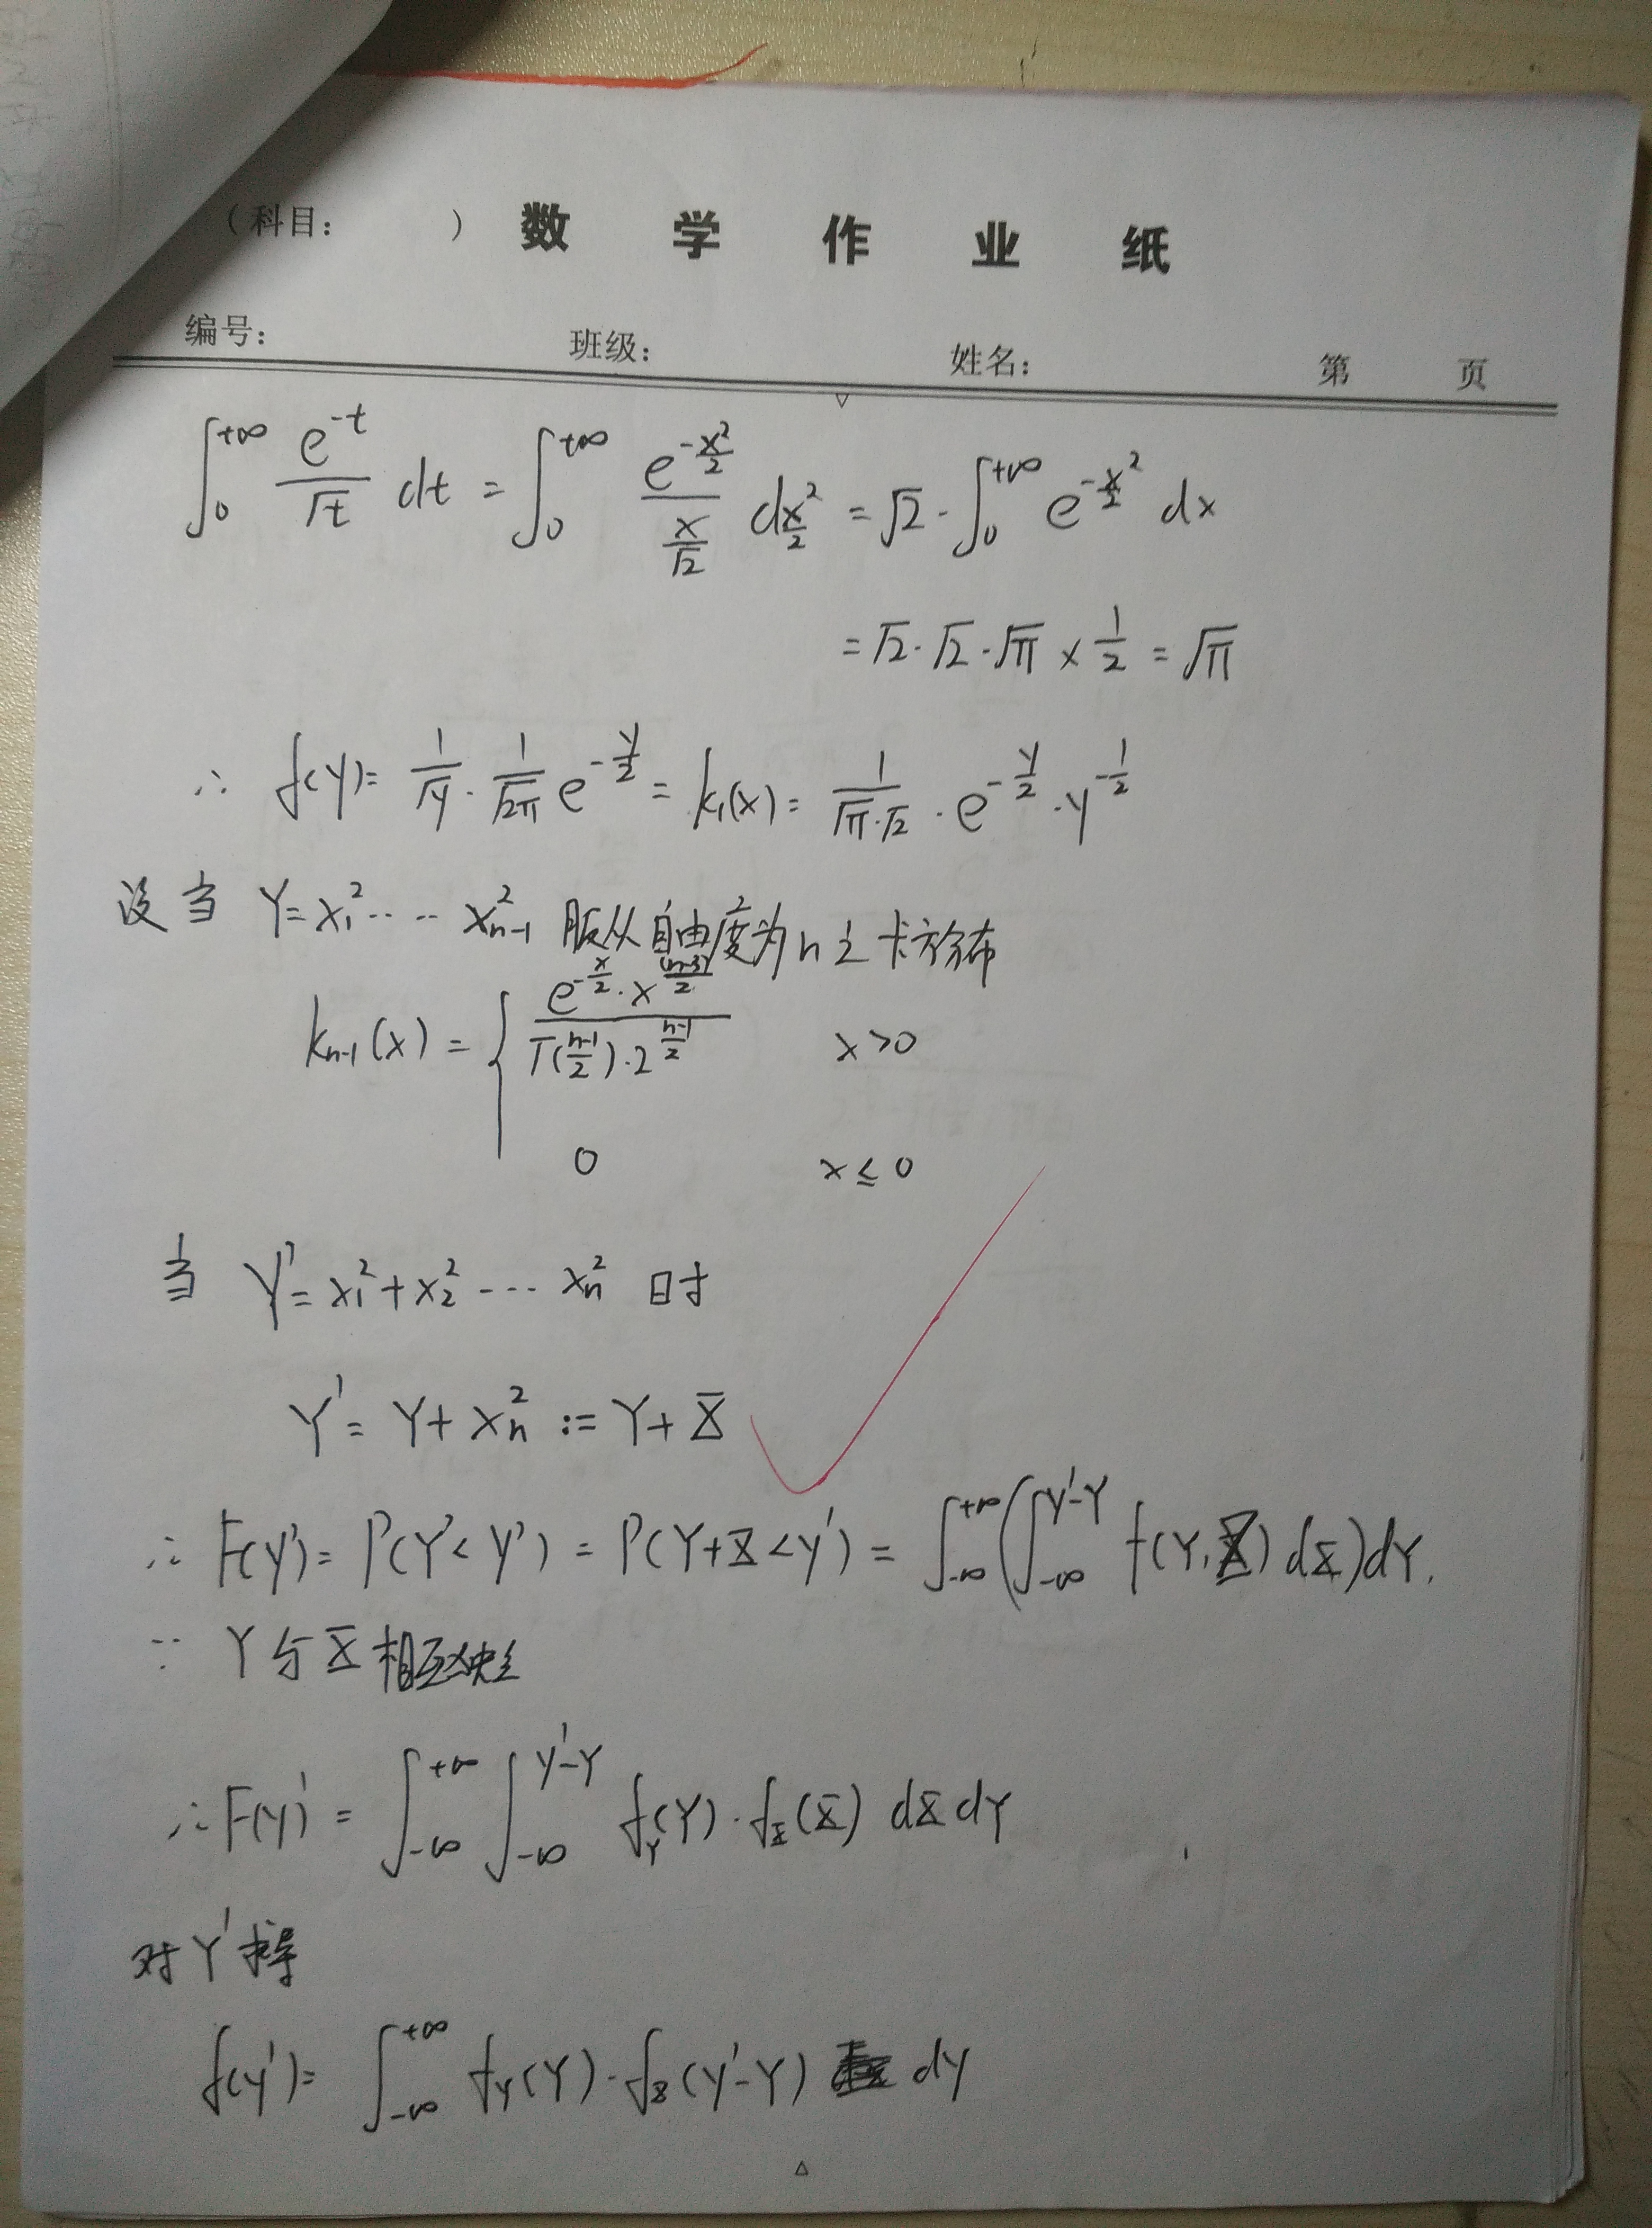 （科目：　　） 数 学 作 业 纸
编号： 班级： 姓名： 第 页
∫₀^{+∞} e^{-t}/√t dt = ∫₀^{+∞} e^{-x²/2}/(x/√2) d x²/2 = √2 · ∫₀^{+∞} e^{-x²/2} dx
= √2·√2·√π × 1/2 = √π
∴ f(y) = 1/√y · 1/√2π e^{-y/2} = k₁(x) = 1/(√π·√2) · e^{-y/2} · y^{-1/2}
设当 Y = x₁² ···· x²ₙ₋₁ 服从自由度为 n 之卡方分布
kₙ₋₁(x) = { e^{-x/2}·x^{(n-3)/2} / (Γ((n-1)/2)·2^{(n-1)/2}) x>0
0 x≤0
当 Y' = x₁² + x₂² ··· xₙ² 时
Y' = Y + xₙ² := Y + X̄
∴ F(y') = P(Y' < y') = P(Y+X̄ < y') = ∫_{-∞}^{+∞} (∫_{-∞}^{y'-Y} f(Y, X̄) dX̄) dY.
∵ Y 与 X̄ 相互独立
∴ F(y') = ∫_{-∞}^{+∞} ∫_{-∞}^{y'-Y} f_Y(Y) · f_X̄(X̄) dX̄ dY
对 Y' 求导
f(y') = ∫_{-∞}^{+∞} f_Y(Y) · f_X̄(y'-Y) dY